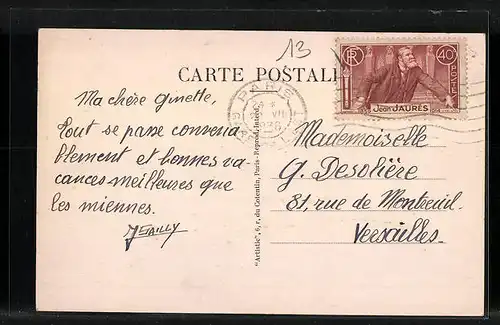 13
CARTE POSTALE
RF
40c
POSTES
Jean JAURÈS
PARIS
Ma chère Ginette,
Tout se passe convena
blement et bonnes va
cances meilleures que
les miennes.
"Artistic", 6, r. du Cotentin, Paris-Reprod. interd.
Mademoiselle
G. Desolière
31, rue de Montreuil
Versailles.